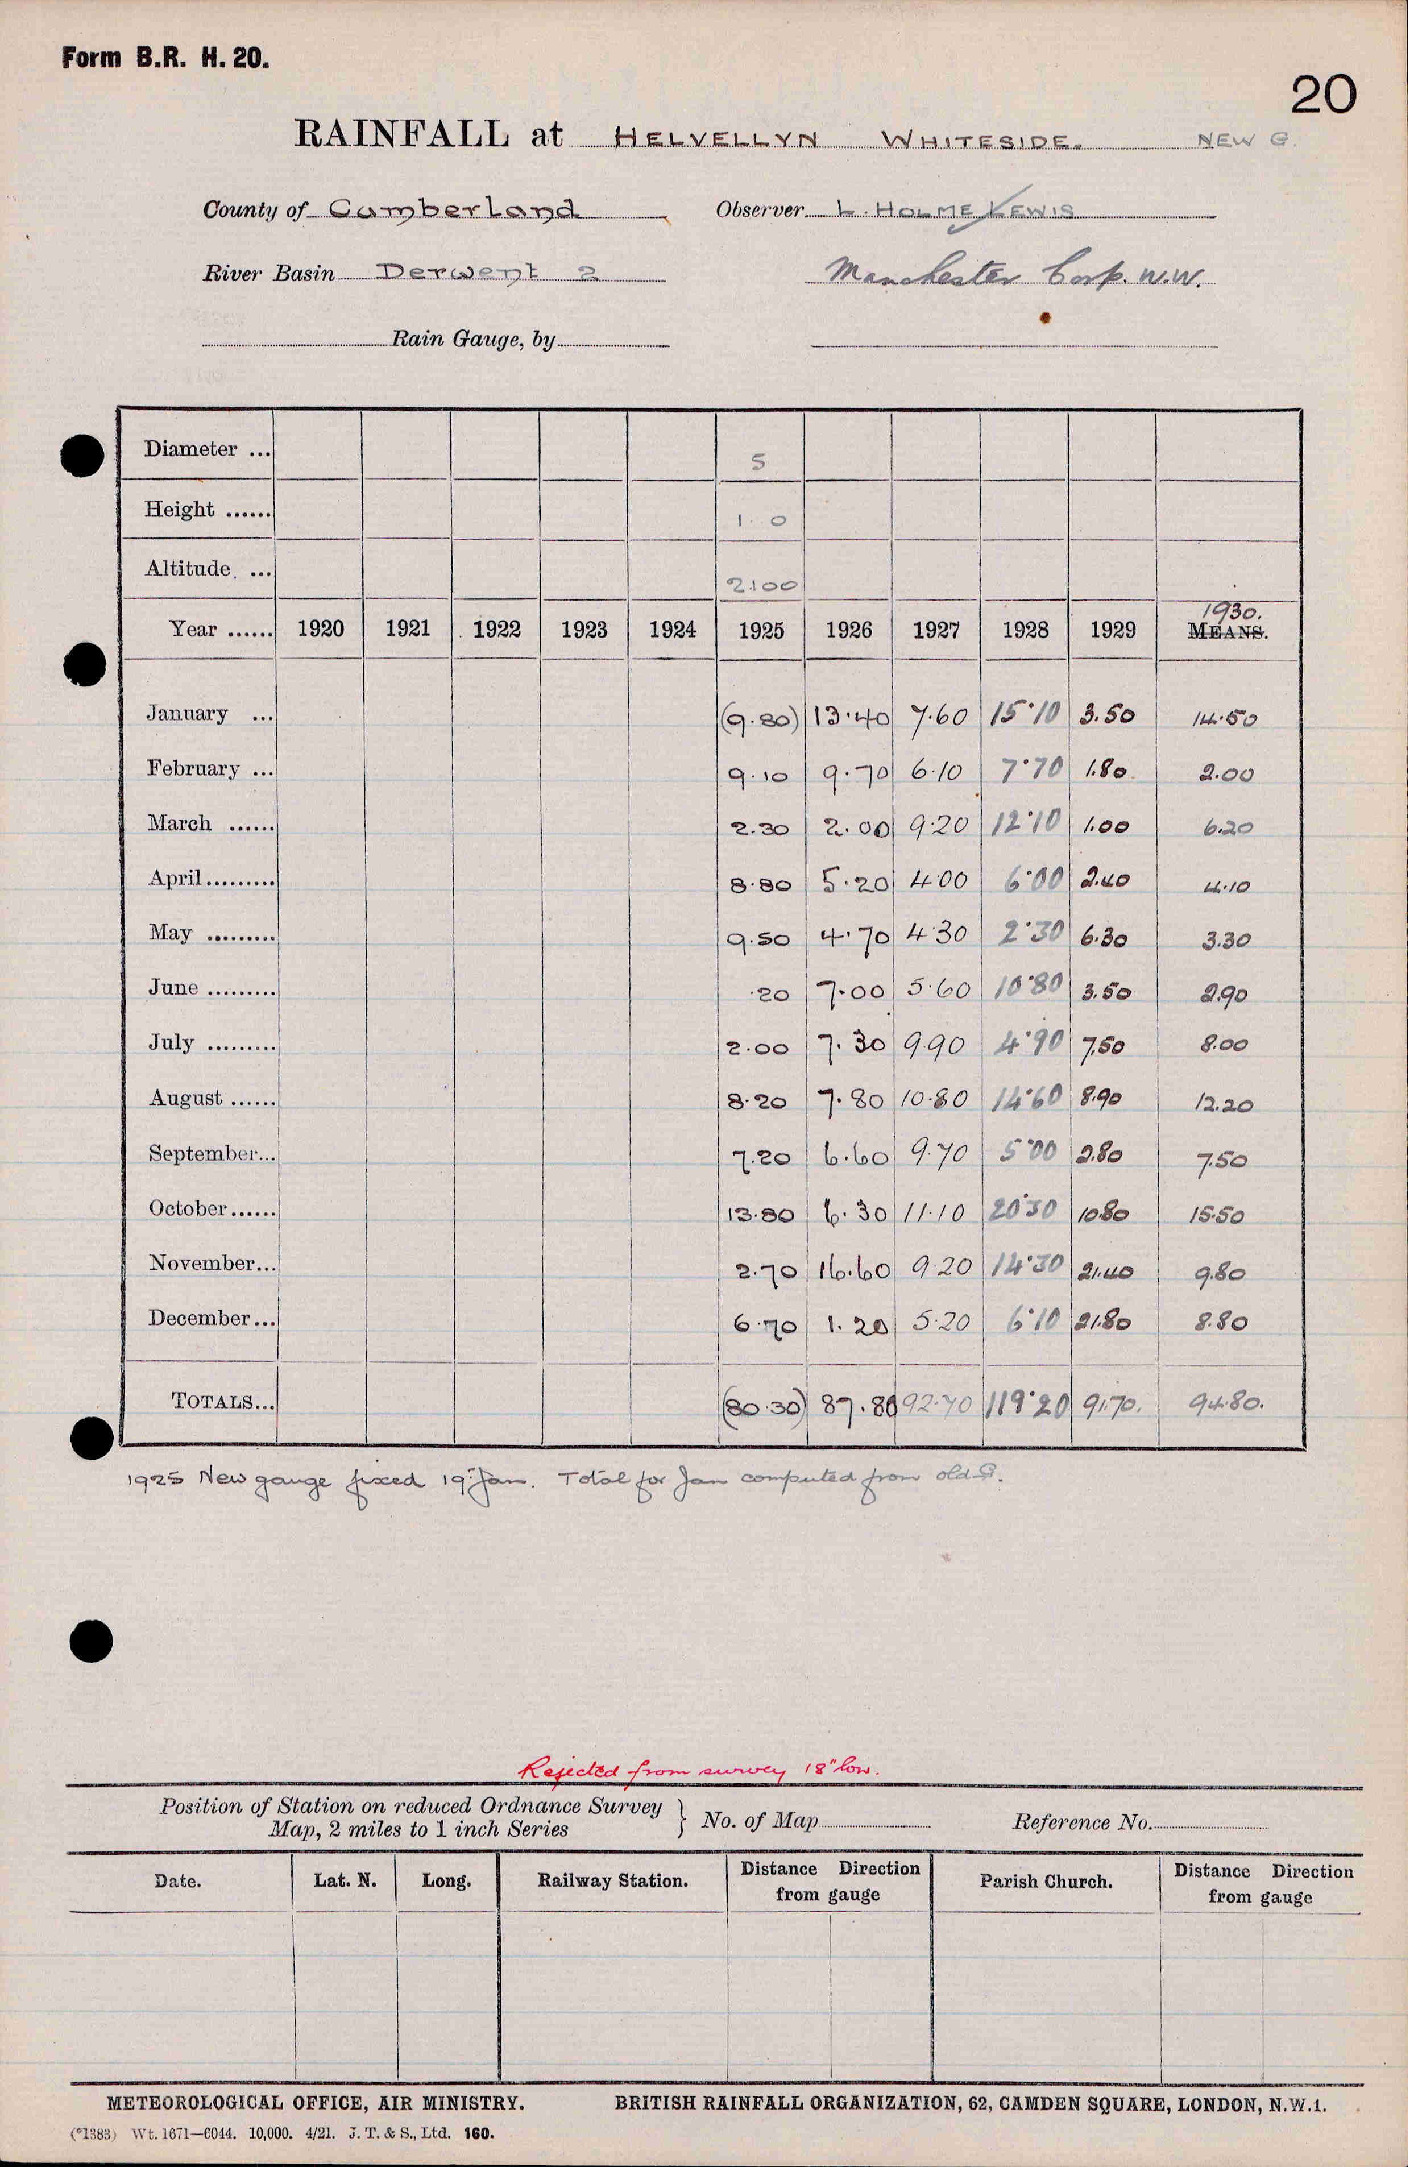 Form B.R. H. 20.
20
RAINFALL at HELVELLYN WHITESIDE. NEW G.
County of Cumberland Observer L. HOLME LEWIS
River Basin Derwent 2 Manchester Corp. W.W.
Rain Gauge, by
Diameter ... 5
Height ...... 1 0
Altitude ... 2100
1930.
Year ...... 1920 1921 1922 1923 1924 1925 1926 1927 1928 1929 MEANS.
January ... (9.80) 13.40 7.60 15.10 3.50 14.50
February ... 9.10 9.70 6.10 7.70 1.80 2.00
March ...... 2.30 2.00 9.20 12.10 1.00 6.20
April ......... 8.80 5.20 4.00 6.00 2.40 4.10
May ......... 9.50 4.70 4.30 2.30 6.30 3.30
June ......... .20 7.00 5.60 10.80 3.50 2.90
July ......... 2.00 7.30 9.90 4.90 7.50 8.00
August ...... 8.20 7.80 10.80 14.60 8.90 12.20
September... 7.20 6.60 9.70 5.00 2.80 7.50
October ...... 13.80 6.30 11.10 20.30 10.80 15.50
November... 2.70 16.60 9.20 14.30 21.40 9.80
December... 6.70 1.20 5.20 6.10 21.80 8.80
TOTALS... (80.30) 87.80 92.70 119.20 91.70. 94.80.
1925 New gauge fixed 19th Jan. Total for Jan computed from old G.
Rejected from survey 18" low.
Position of Station on reduced Ordnance Survey Map, 2 miles to 1 inch Series } No. of Map Reference No.
Date. Lat. N. Long. Railway Station. Distance Direction from gauge Parish Church. Distance Direction from gauge
METEOROLOGICAL OFFICE, AIR MINISTRY. BRITISH RAINFALL ORGANIZATION, 62, CAMDEN SQUARE, LONDON, N.W.1.
(*1383) Wt. 1671—6044. 10,000. 4/21. J. T. & S., Ltd. 160.